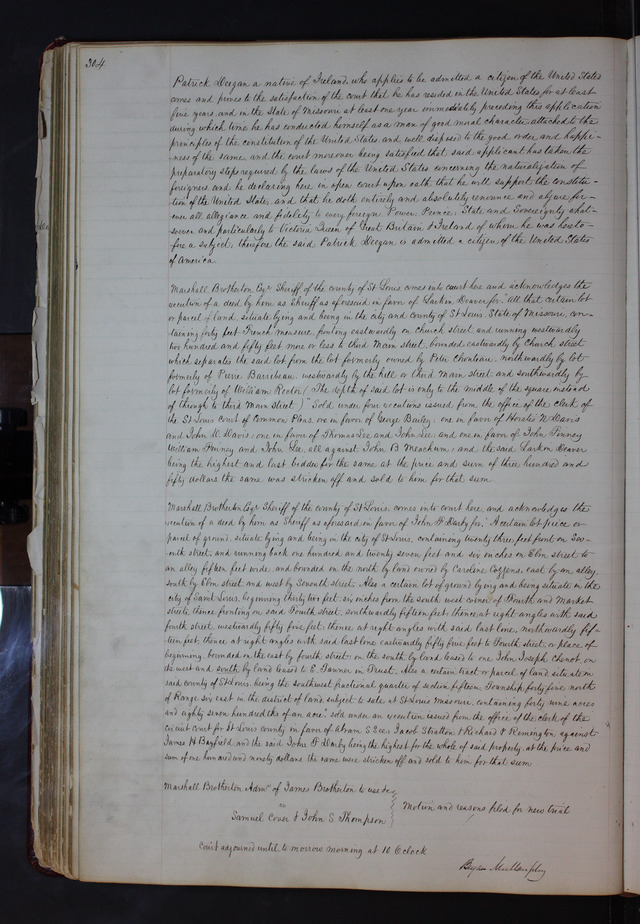 304
Patrick Deegan a native of Ireland who applies to be admitted a citizen of the United States
comes and proves to the satisfaction of the court that he has resided in the United States for at least
five years and in the State of Missouri at least one year immediately preceding this application
during which time he has conducted himself as a man of good moral character attached to the
principles of the constitution of the United States and well disposed to the good order and happi-
ness of the same and the court moreover being satisfied that said applicant has taken the
preparatory steps required by the laws of the United States concerning the naturalization of
foreigners and he declaring here in open court upon oath that he will support the constitu-
tion of the United States, and that he doth entirely and absolutely renounce and abjure for-
ever all allegiance and fidelity to every foreign Power, Prince, State and Sovereignty what-
soever and particularly to Victoria Queen of Great Britain & Ireland of whom he was hereto-
fore a subject, therefore the said Patrick Deegan is admitted a citizen of the United States
of America
Marshall Brotherton Esqr. Sheriff of the county of St Louis comes into court here and acknowledges the
execution of a deed by him as Sheriff as aforesaid in favor of Larkin Deaver for "All that certain lot
or parcel of land, situate lying and being in the city and county of St Louis State of Missouri, con-
taining forty feet French measure, fronting eastwardly on church street and running westwardly
two hundred and fifty feet more or less to third Main street, bounded eastwardly by Church street
which separates the said lot from the lot formerly owned by Peter Chouteau, northwardly by lot
formerly of Pierre Barribeau, westwardly by the hill or third Main street and southwardly by
lot formerly of William Rector (The depth of said lot is only to the middle of the square instead
of through to third Main Street.)" Sold under four executions issued from the office of the clerk of
the St Louis court of Common Pleas one in favor of George Bailey, one in favor of Horatio N Davis
and John M. Davis, one in favor of Thomas Lee and John Lee, and one in favor of John Finney
William Finney and John Lee, all against John B Meachum, and the said Larkin Deaver
being the highest and last bidder for the same at the price and sum of three hundred and
fifty dollars the same was stricken off and sold to him for that sum
Marshall Brotherton Esqr Sheriff of the county of St Louis, comes into court here, and acknowledges the
execution of a deed by him as Sheriff as aforesaid in favor of John F Darby for, "A certain lot piece or
parcel of ground, situate lying and being in the city of St Louis, containing twenty three feet front on Sev-
enth street, and running back one hundred and twenty seven feet and six inches on Elm street to
an alley fifteen feet wide, and bounded on the north by land owned by Caroline Cozzens, east by an alley,
south by Elm street and west by Seventh street. Also a certain lot of ground lying and being situate in the
city of Saint Louis, beginning thirty two feet six inches from the south west corner of Fourth and Market
streets, thence fronting on said Fourth street, southwardly fifteen feet, thence at right angles with said
fourth street, westwardly fifty five feet, thence at right angles with said last line, northwardly fif-
teen feet, thence at right angles with said last line eastwardly fifty five feet to Fourth street, or place of
beginning, bounded on the east by fourth street, on the south by land leased to one John Joseph on
the west and south by land leased to E in Trust. Also a certain tract or parcel of land situate in
said county of St Louis, being the southwest fractional quarter of section fifteen Township forty five north
of Range six east in the district of land subject to sale at St Louis Missouri, containing forty nine acres
and eighty seven hundredths of an acre," sold under an execution issued from the office of the clerk of the
circuit court for St Louis county in favor of Abram S Jacob Stratton & Richard & Remington against
James H and the said John F Darby being the highest for the whole of said property, at the price and
sum of one hundred and ninety dollars the same were stricken off and sold to him for that sum
Marshall Brotherton Admr. of James Brotherton to use &c
vs
Samuel Conser & John S Thompson
Motion and reasons filed for new trial
Court adjourned until to morrow morning at 10 O'clock
Bryan Mullanphy